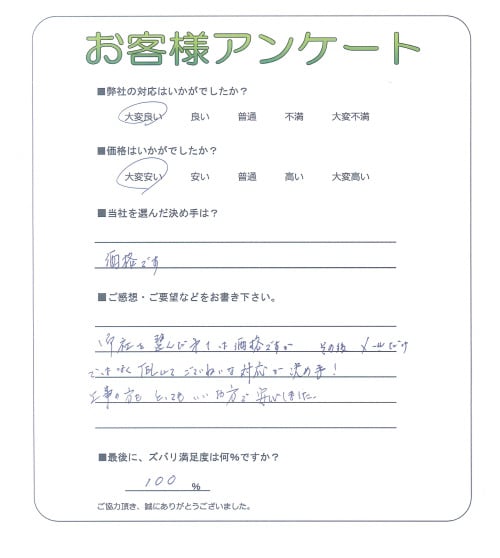 お客様アンケート
■弊社の対応はいかがでしたか？
大変良い 良い 普通 不満 大変不満
■価格はいかがでしたか？
大変安い 安い 普通 高い 大変高い
■当社を選んだ決め手は？
価格です
■ご感想・ご要望などをお書き下さい。
御社を選んだ決め手は価格ですが その後 メールだけ
ではなく TELして ごていねいな対応が決め手！
工事の方も とっても いい 方で 安心しました。
■最後に、ズバリ満足度は何%ですか？
100 %
ご協力頂き、誠にありがとうございました。